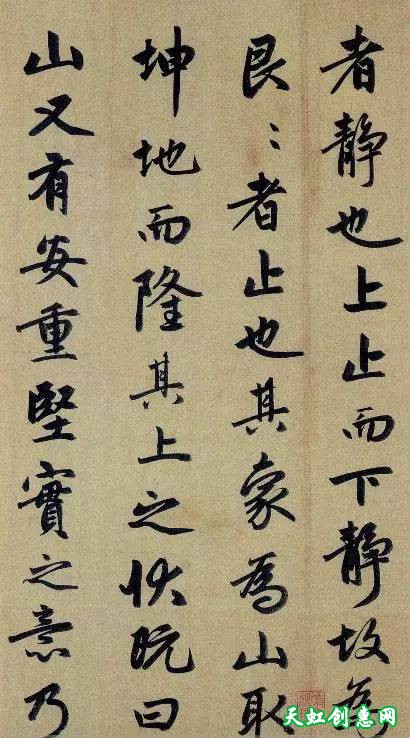 者静也上止而下静故為
艮〻者止也其象為山取
坤地而隆其上之状既曰
山又有安重堅實之意乃
天虹创意网